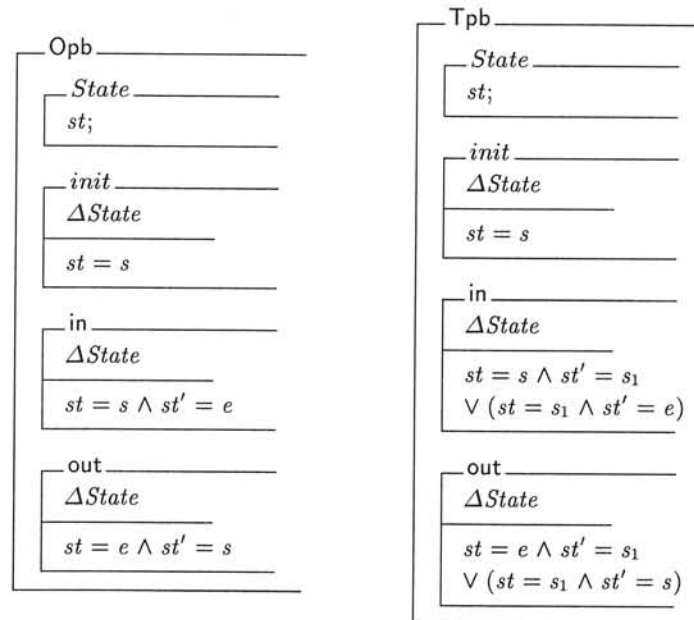 Opb
State
st;
init
ΔState
st = s
in
ΔState
st = s ∧ st′ = e
out
ΔState
st = e ∧ st′ = s
Tpb
State
st;
init
ΔState
st = s
in
ΔState
st = s ∧ st′ = s₁
∨ (st = s₁ ∧ st′ = e)
out
ΔState
st = e ∧ st′ = s₁
∨ (st = s₁ ∧ st′ = s)